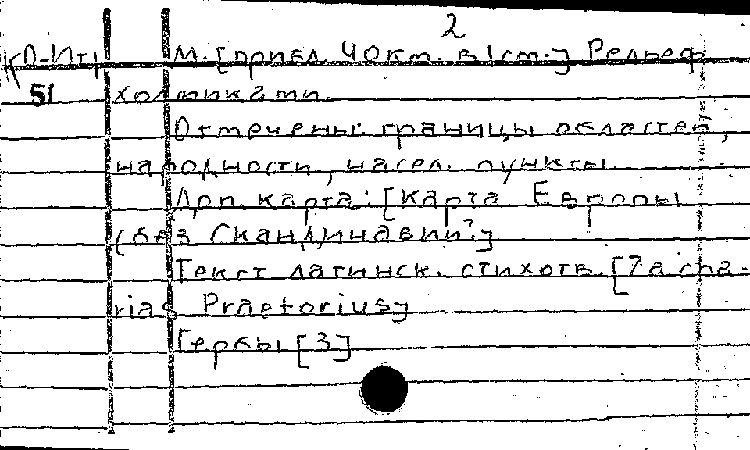 2
К О-Ит1 М. [прибл. 40км. в 1см.] Рельеф
51 холмиками.
Отмечены: границы областей,
народности, насел. пункты.
Доп. карта: [Карта Европы
(без Скандинавии?]
Текст латинск. стихотв. [Zacha-
rias Praetorius]
Гербы [3]